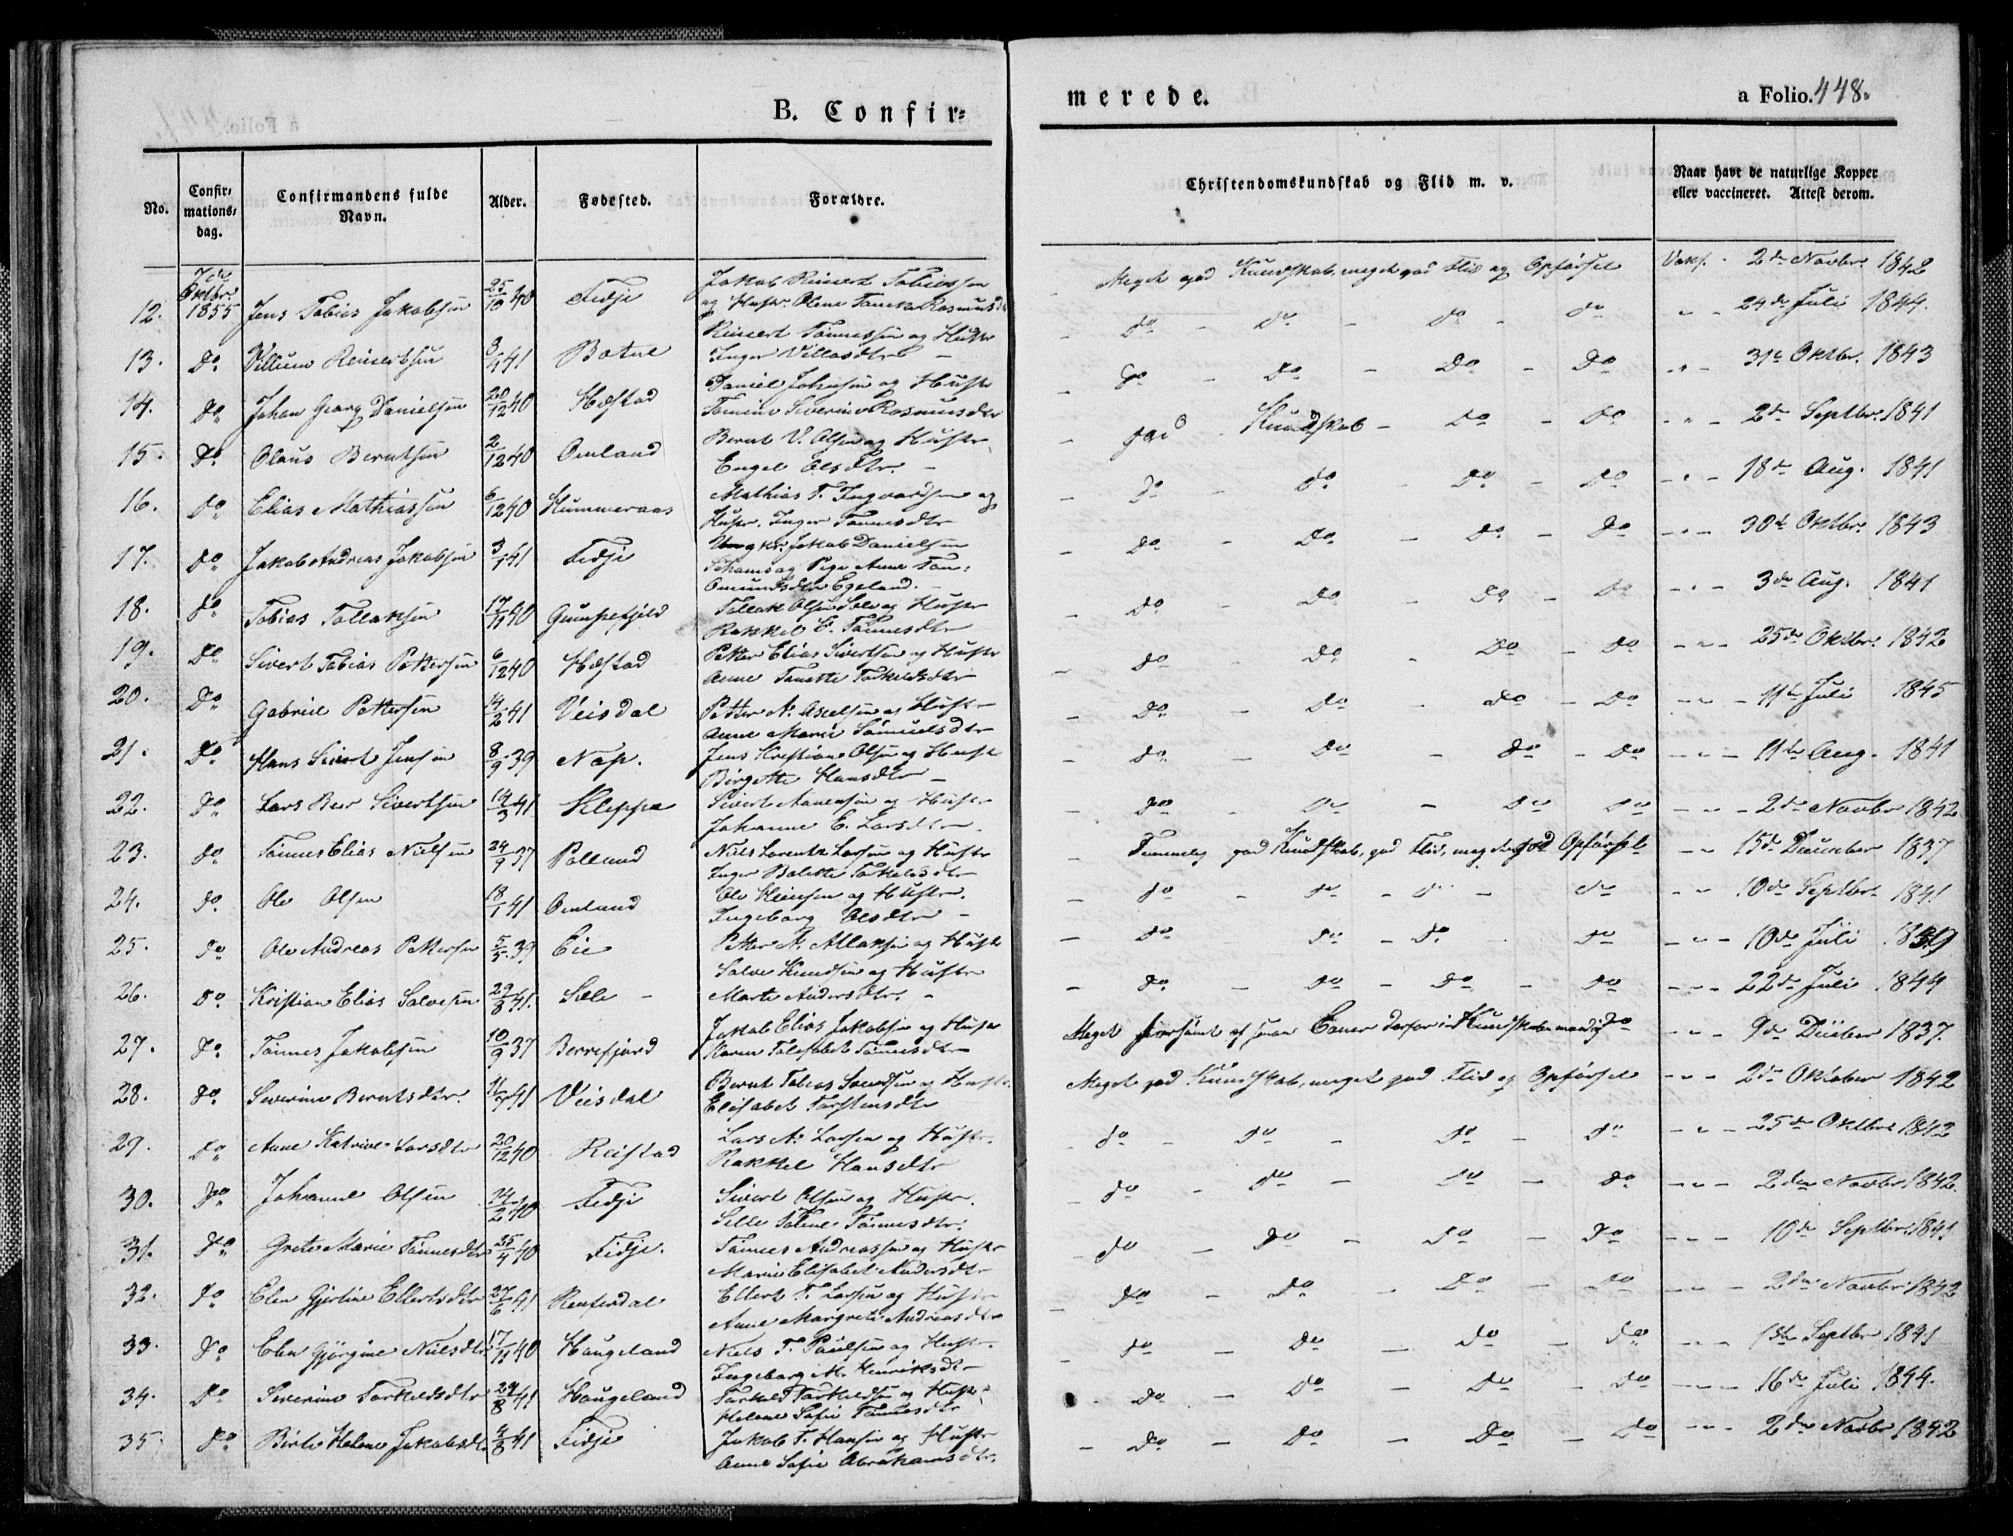 B. Confir=
merede.
a Folio. 448.
No.
Confir-
mations-
dag.
Confirmandens fulde
Navn.
Alder.
Fødested.
Forældre.
Christendomskundskab og Flid m. v.
Naar havt de naturlige Kopper
eller vaccineret. Attest derom.
7de
Oktbr.
12. 1855 Jens Tobias Jakobsen 25/10 40 Fidje Jakob Reinert Tobiassen
og Hustr. Olene Rasmusdr Meget god Kundskab, meget god Flid og Opførsel Vaks. 2de Novbr. 1842
13. Do Villum Reinertsen 3/1 41 Botne Reinert Tønnessen og Hustr
Inger Villasdtr - do - do - do - do " - 24de Juli 1844.
14. Do Johan Georg Danielsen 20/12 40 Hæstad Daniel Johnsen og Hustr
Tomine Severine Rasmusdtr - do - Do - Do - Do " - 31te Oktbr. 1843
15. Do Olaus Berntsen 2/12 40 Omland Bernt V. Olsen og Hustr
Engel Olsdtr. - - god Kundskab - Do - Do - " - 2de Septbr. 1841
16. Do Elias Mathiassen 6/12 40 Hummeraas Mathias T. Ingvardsen og
Hustr. Inger Tønnesdtr - Do - do - Do - Do - " - 18de Aug. 1841
17. Do Jakob Andreas Jakobsen 3/1 41 Fidje Ungkr. Jakob Danielsen
og Pige Anne
Omundsdtr Egeland. - - Do - Do - Do - Do - " - 30te Oktbr. 1843
18. Do Tobias Tollaksen 17/11 40 Gumpefjeld Tollak Olsen og Hustr
Rakkel E. Tønnesdtr - Do - Do - Do - Do - " - 3de Aug. 1841
19. Do Sivert Tobias Pettersen 6/12 40 Hæstad Petter Elias Sivertsen og Hustr
Anne Tomette Torkeldsdtr - Do - Do - Do - Do - " - 25de Oktbr. 1842
20. Do Gabriel Pettersen 14/2 41 Veisdal Petter N. Axelsen og Hustr
Anne Marie Samuelsdtr - Do - Do - Do - Do - " - 11te Juli 1845
21. Do Hans Sivert Jensen 8/9 39 Nap. Jens Kristian Olsen og Hustr
Birgette Hansdtr - - Do - Do - Do - Do - " - 11te Aug. 1841
22. Do Lars Beer Sivertsen 14/3 41 Kleppe Sivert Aanensen og Hustr
Johanne E. Larsdtr. - Do - Do - Do - Do - " - 2de Novbr 1842
23. Do Tønnes Elias Nielsen 24/9 37 Pollund Niels Lorentz Larsen og Hustr
Inger Bolette Torkelsdtr - Temmelig god Kundskab, god Flid, meget god Opførsel - " - 15de December 1837
24. Do Ole Olsen 18/1 41 Omland Ole Heinsen og Hustr.
Ingeborg Olsdtr - - do - do - do - do - " - 10de Septbr. 1841
25. Do Ole Andreas Pettersen 5/5 39 Eie Petter A. Atlaksen og Hustr - Do - do - Do. do - " - 10de Juli 1839
26. Do Kristian Elias Salvesen 29/8 41. Selle - Salve Knudsen og Hustr
Marte Andersdtr. - - do - do - Do - Do - " - 22de Juli 1844
27. Do Tønnes Jakobsen 10/9 37 Berrefjord Jakob Elias Jakobsen og Hustr
Karen Elisabet Tønnesdtr Meget forsømt af sine derfor Kundskaben maadelig Do - " - 9de Decbr 1837.
28. Do Severine Berntsdtr. 11/7 41 Veisdal Bernt Tobias Svendsen og Hustr.
Elisabet Torstensdtr Meget god Kundskab, meget god Flid og Opførsel - " - 2de Oktober 1842
29. Do Anne Katrine Larsdtr 20/12 40 Reistad Lars A. Larsen og Hustr.
Rakkel Hansdtr do - do - do - do - " - 25de Oktbr 1842
30. Do Johanne Olsen 24/2 40 Fidje Sivert Olsen og Hustr.
Sille Tolene Tønnesdtr. - do - do - do - do - " - 2den Novbr 1842.
31. Do Grete Marie Tønnesdtr 25/4 40 Fidje. Tønnes Andreassen og Hustr
Marie Elisabet Andersdtr - do - Do - Do - Do - " - 10de Septbr. 1841
32. Do Elen Gjertine Ellertsdtr 27/6 41 Refsdal Ellert T. Larsen og Hustr
Anne Margrete Andreasdtr - Do - Do - Do - Do - " - 2den Novbr 1842
33. Do Elen Gjørgine Nielsdtr 17/11 40 Haugeland Niels T. Paulsen og Hustr.
Ingeborg M. Henriksdtr - do - Do - Do - Do - " - 1ste Septbr 1841
34. Do Severine Torkeldsdtr 29/8 41 Haugeland Torkeld Torkeldsen og Hustr
Helene Sofie Tønnesdtr - Do - Do - Do - Do - " - 16de Juli 1844.
35. Do Birte Helene Jakobsdtr 4/8 41 Fidje Jakob T. Hansen og Hustr
Anne Sofie Abrahamsdtr. - Do - Do - Do - Do - " - 2den Novbr 1842